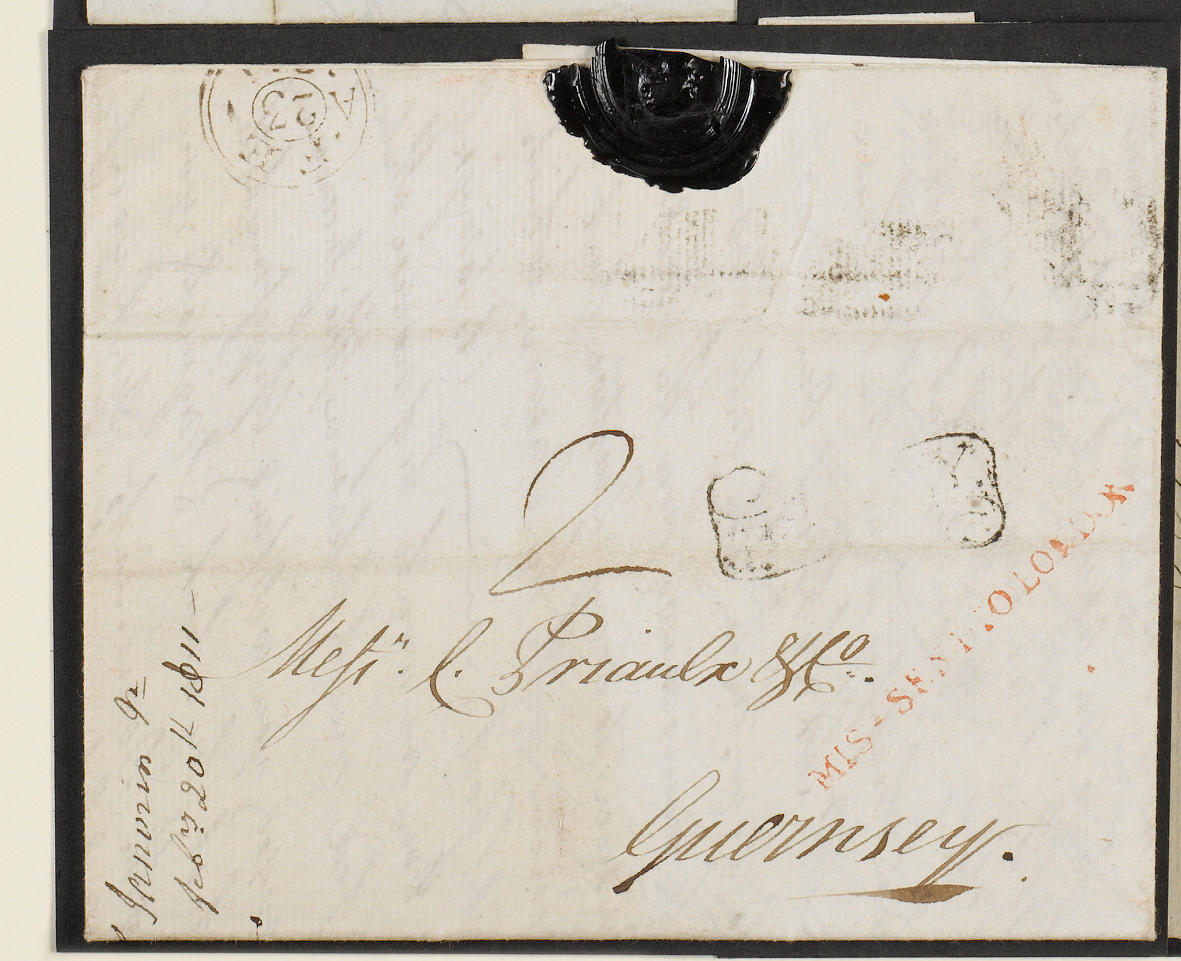 A
23
2
Messrs. C. Priaulx & Co.
MIS-SENT TO LONDON
Guernsey.
feby 20th 1811 -